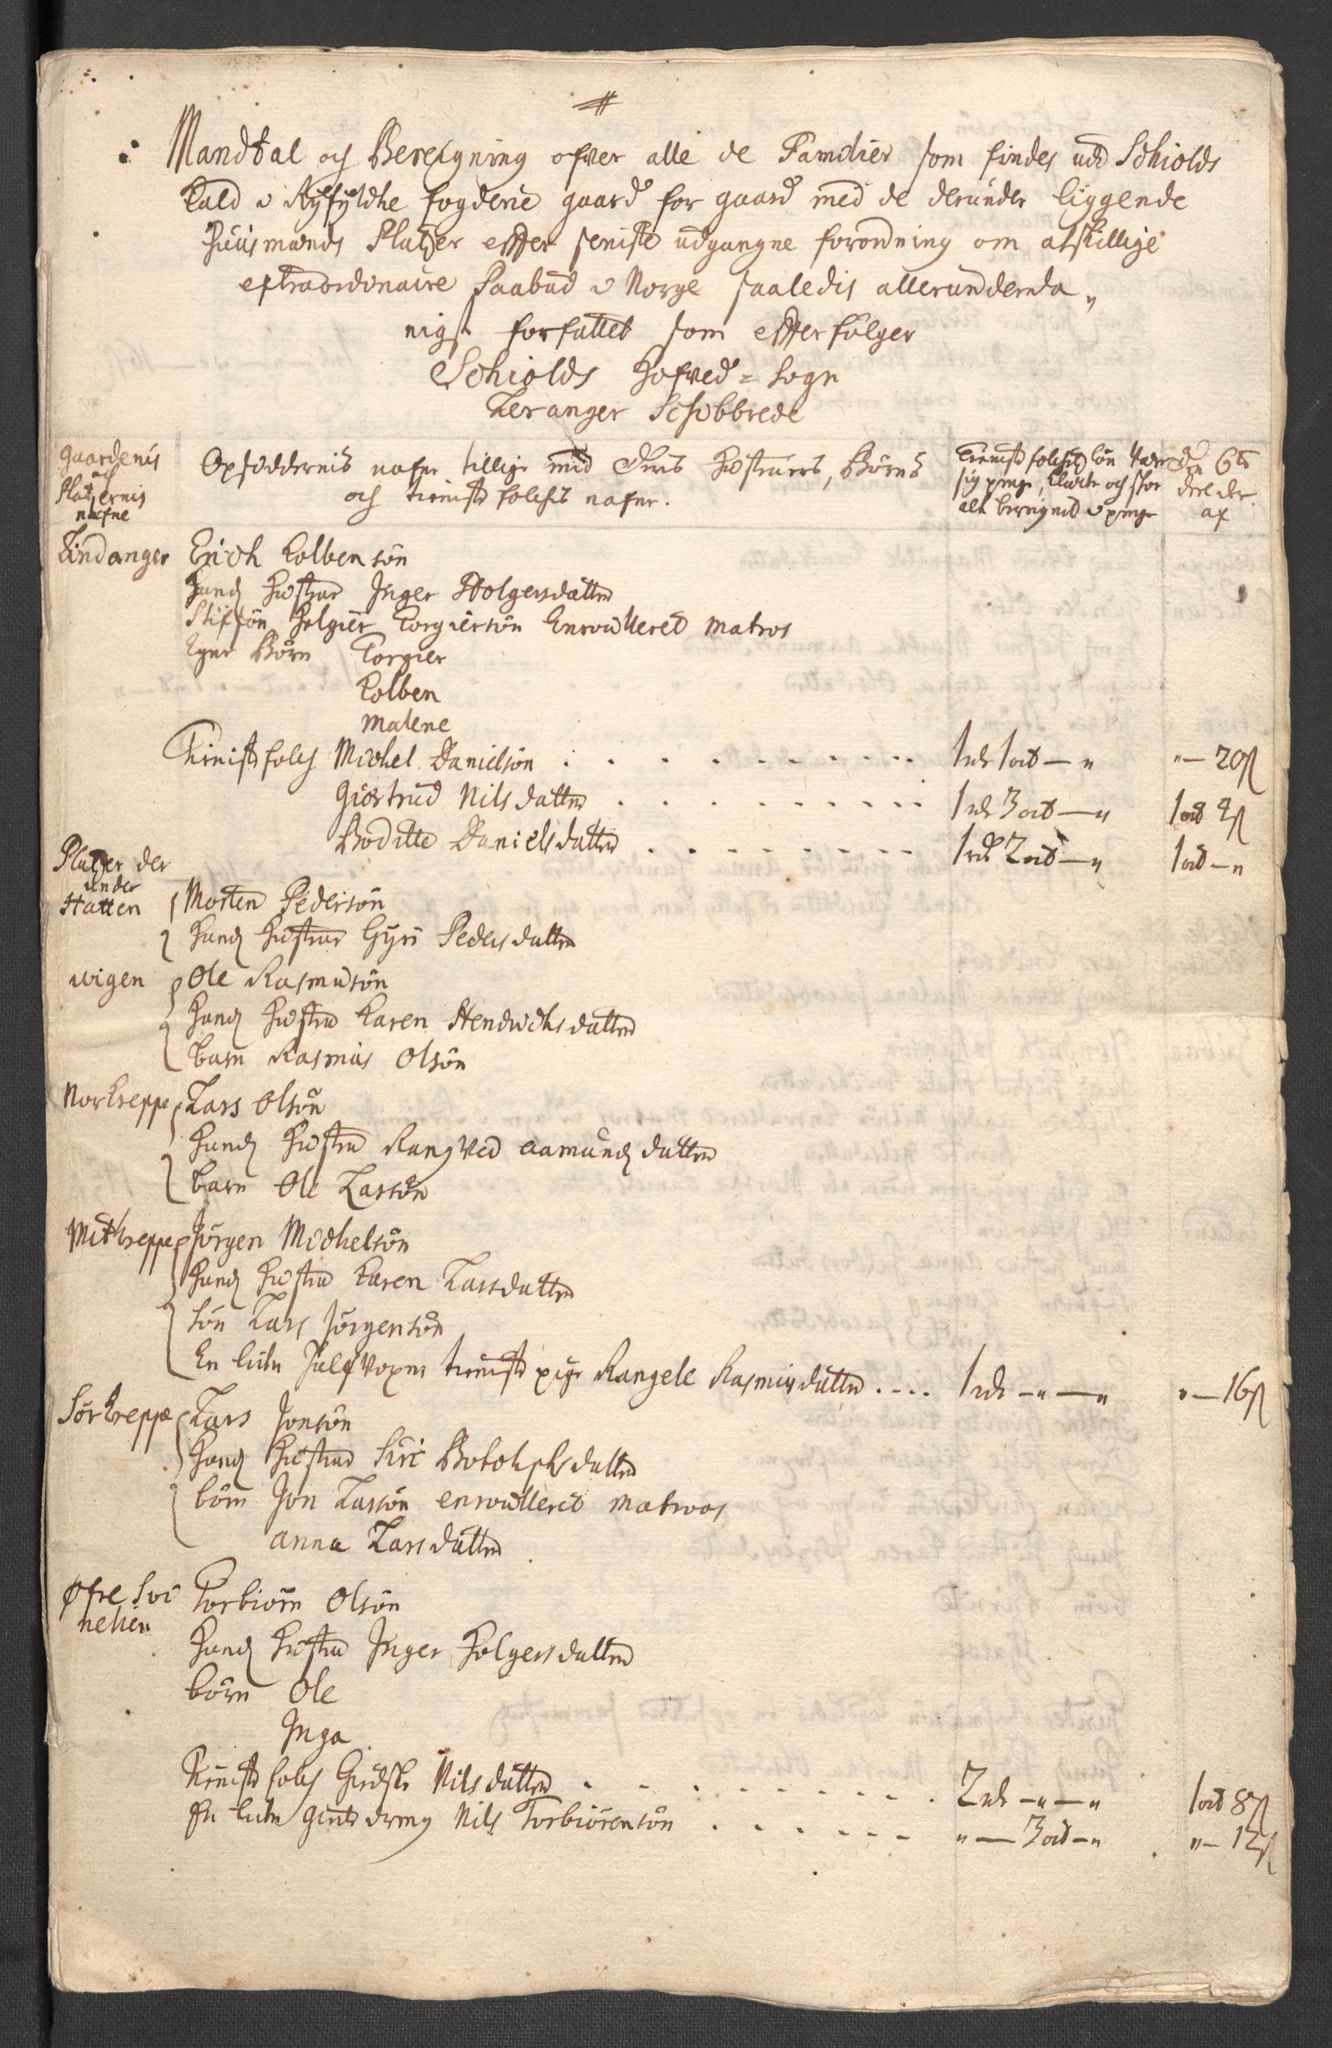 Mandtal och Beregning ofver alle de Familier som findes udi Schiolds
Kald i Ryfylche fogderie gaard for gaard med de derunder liggende
Huusmands Platzer efter seniste udgangne forordning om atskillige
extraordinaire Paabud i Norge saaledis allerunderda„
nigst forfattet som efterfølger
Schiolds Hofved = Sogn
Leranger Schibbrede
Gaardenis
och
Platzernis
nafne
Opsiddernis nafne tillige med deris Hustruers, Børns
och tieniste folchis nafne.
Tieniste folchis løn være
sig penge, Klæder och skoe
alt beregnet i penge
6te
deel der
af
Tindanger Erich Colbensön
Hans Hustrue Inger Holgersdatter
Stifsön Holgier Torgiersön Enroulleret Matros
Egne Børn Torgier
Colben
Malene
Tieniste folch Michel Danielsön 1 rdr 1 ort — „ „ — 20 ß
Giertrud Nilsdatter 1 rdr 3 ort — „ 1 ort 4 ß
Boditte Danielsdatter 1 rdr 2 ort — „ 1 ort — „
Platzer der
under
Hatten Morten Pedersön
Hans Hustrue Gyri Pedersdatter
Wigen Ole Rasmusön
Hans Hustru Karen Hendrichsdatter
barn Rasmus Olsön
Norkreppe Lars Olsön
Hans Hustru Rangved Aamundsdatter
barn Ole Larsön
Mitkreppe Jörgen Michelsön
Hans Hustru Karen Larsdatter
sön Lars Jörgensön
En liden halfvoxen tieniste pige Rangele Rasmusdatter 1 rdr — „ — „ „ — 16 ß
Sörkreppe Lars Jonsön
Hans Hustrue Siri Botolphsdatter
börn Jon Larsön enroulleret Matroos
Anna Larsdatter
Øfre Svi
nelien Torbiörn Olsön
Hans Hustru Inger Holgersdatter
börn Ole
Inga
Tieniste folch Nilsdatter 2 rdr — „ — „ 1 ort 8 ß
En liden dreng Nils Torbiörensön „ — 3 ort — „ „ — 12 ß